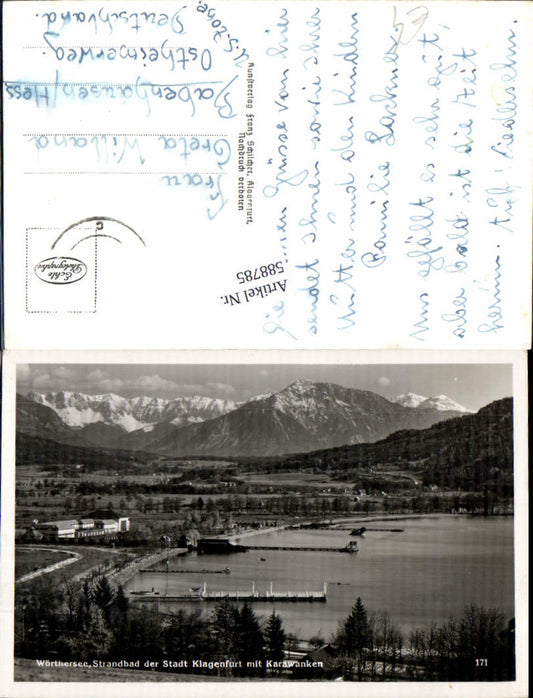 Die
Grüsse von hier
sendet Ihnen sowie Ihrer
Mutter und den Kindern
Familie Lackner
Uns gefällt es sehr gut,
aber bald ist die Zeit
herum. Auf Wiedersehn.
Kunstverlag Franz Schilcher, Klagenfurt,
Nachdruck verboten
Frau
Greta Willand
Babenhausen/Hess
Ostheimerweg.
U.S. Zone
Deutschland.
Echte
Photographie
Artikel Nr.
588785
Wörthersee, Strandbad der Stadt Klagenfurt mit Karawanken
171